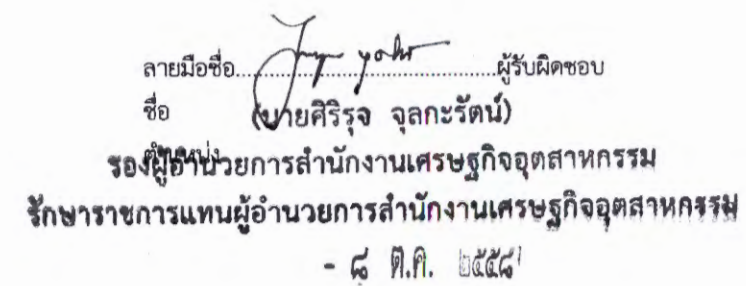 ลายมือชื่อ..............................................ผู้รับผิดชอบ
ชื่อ (นายศิริรุจ จุลกะรัตน์)
ตำแหน่ง
รองผู้อำนวยการสำนักงานเศรษฐกิจอุตสาหกรรม
รักษาราชการแทนผู้อำนวยการสำนักงานเศรษฐกิจอุตสาหกรรม
- ๘ ต.ค. ๒๕๕๘